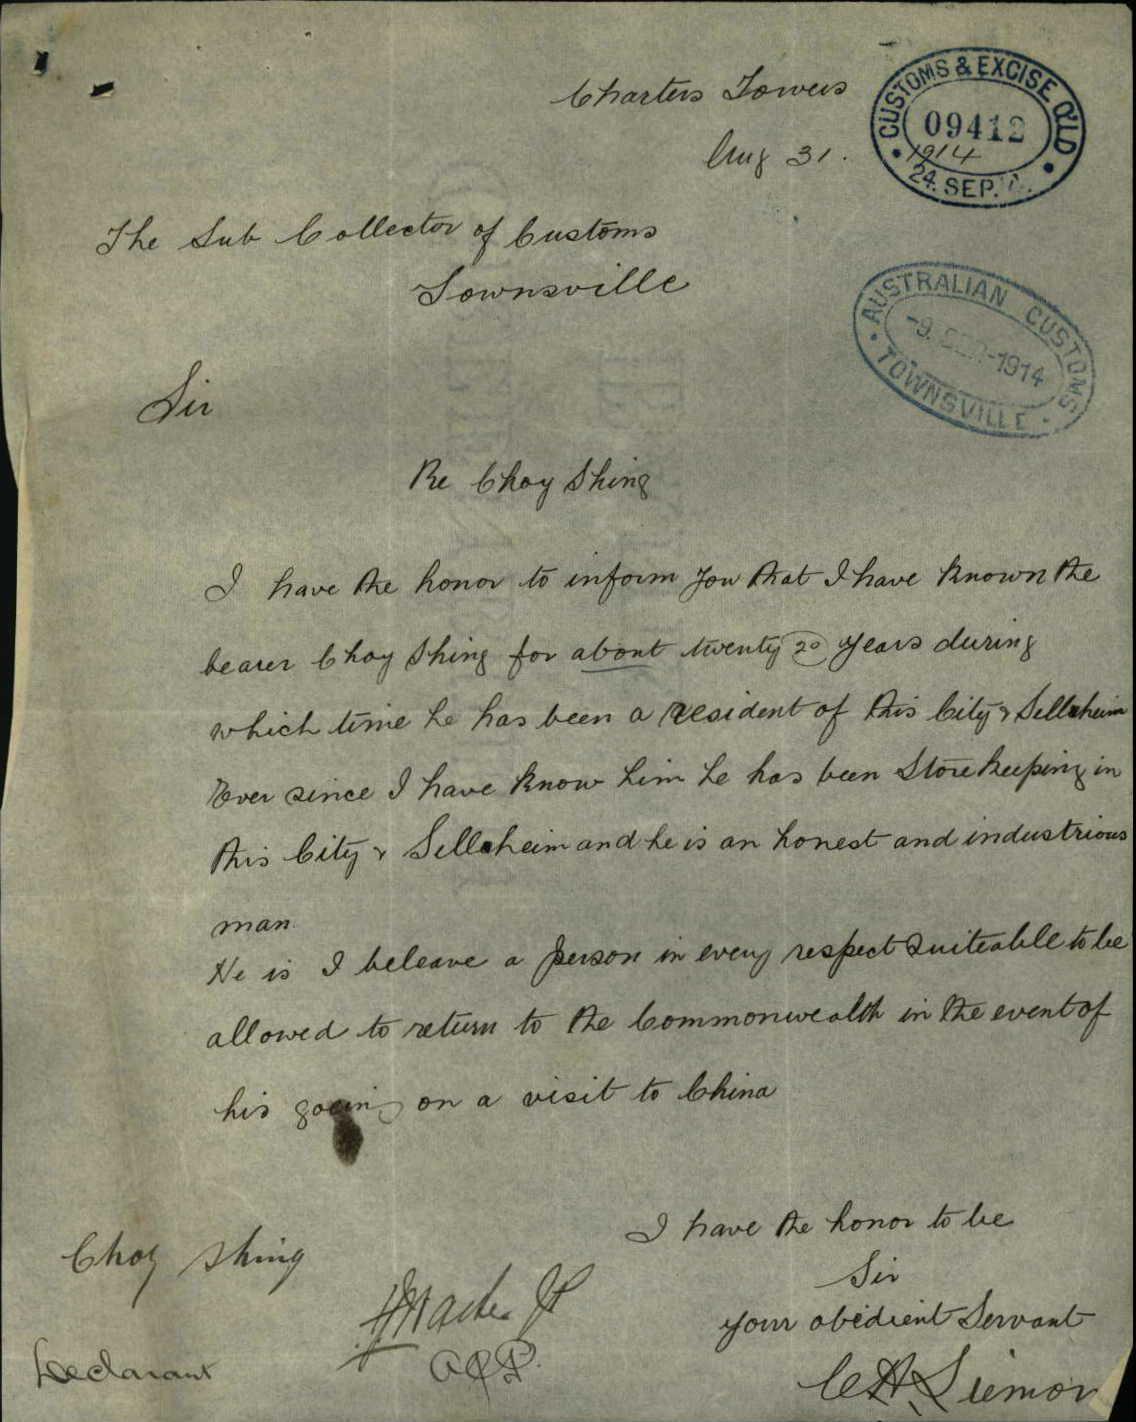 Charters Towers
Aug 31.
CUSTOMS & EXCISE Q'LD
09412
1914
24. SEP.
The Sub Collector of Customs
Townsville
AUSTRALIAN CUSTOMS
-9. 1914
TOWNSVILLE
Sir
Re Choy Shing
I have the honor to inform you that I have known the
bearer Choy Shing for about twenty 20 years during
which time he has been a resident of this City & Sellheim
Ever since I have know him he has been Storekeeping in
this City & Sellheim and he is an honest and industrious
man.
He is I beleave a person in every respect suiteable to be
allowed to return to the Commonwealth in the event of
his going on a visit to China
I have the honor to be
Sir
your obedient Servant
Choy Shing
JP
Declarant